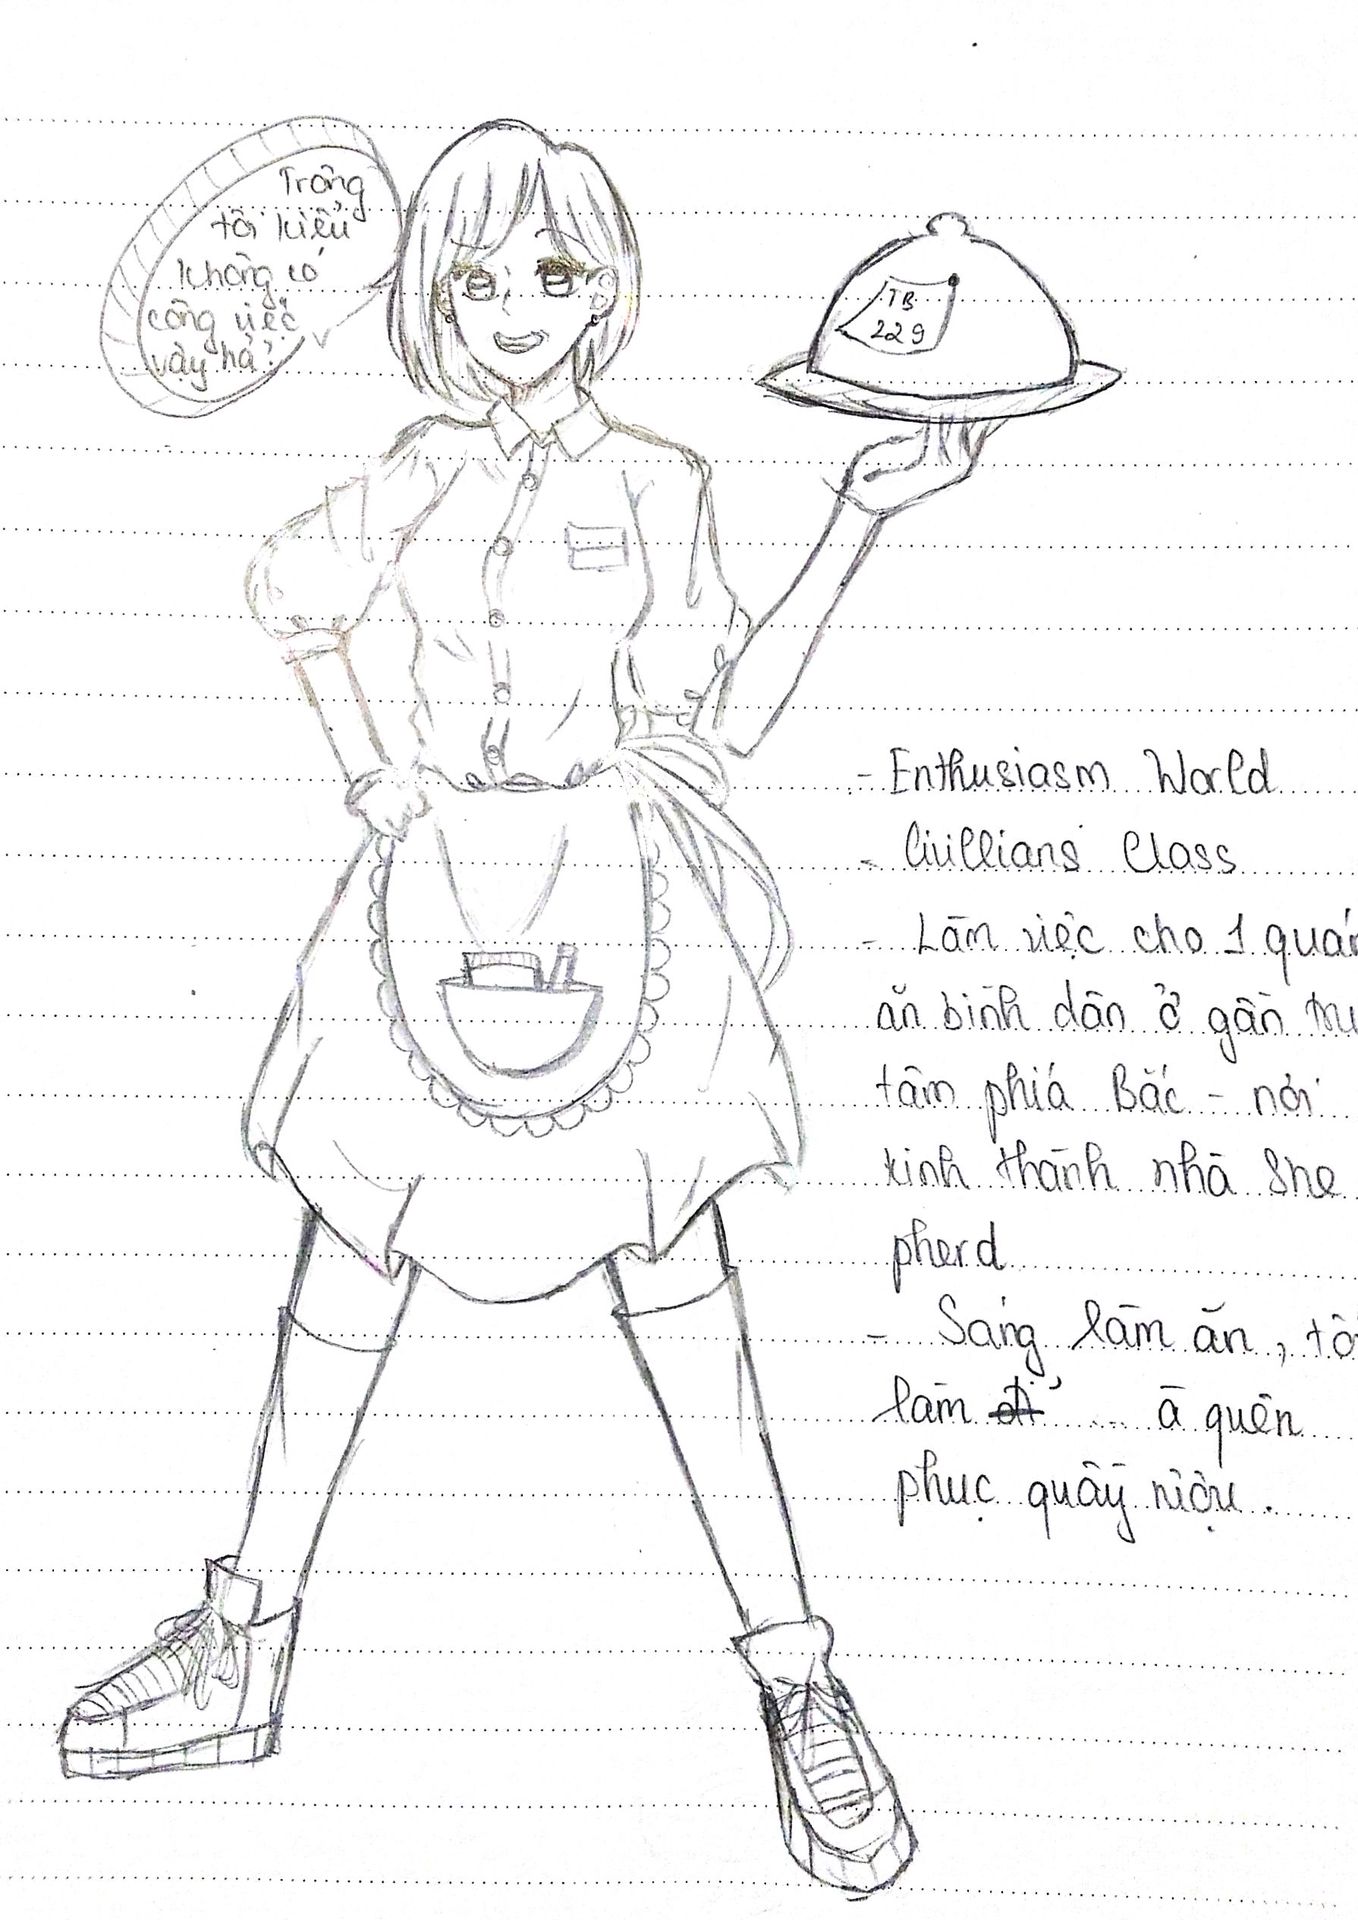 Trông
tôi kiểu
không có
công việc
vậy hả?
TB
229
- Enthusiasm World
- Civillians Class
- Làm việc cho 1 quán
ăn bình dân ở gần
tâm phía Bắc - nơi
kinh thành nhà She
pherd
- Sáng làm ăn, tối
làm ... à quên
phục quầy rượu.